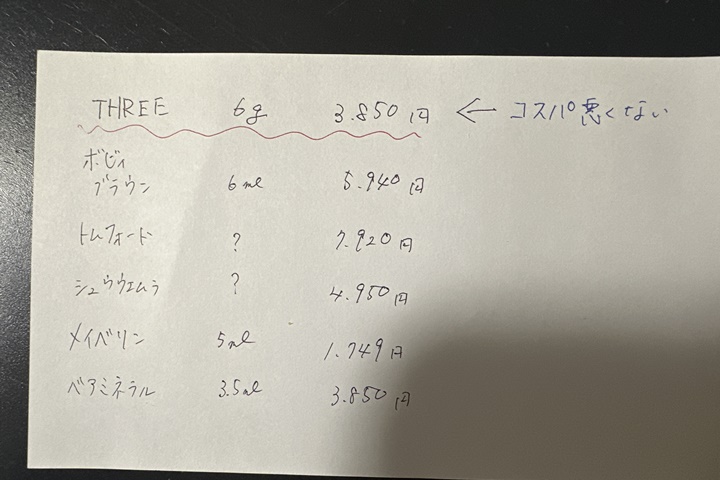 THREE 6g 3.850円 ← コスパ悪くない
ボビィ
ブラウン 6ml 5.940円
トムフォード ? 7.920円
シュウウエムラ ? 4.950円
メイベリン 5ml 1.749円
ベアミネラル 3.5ml 3.850円